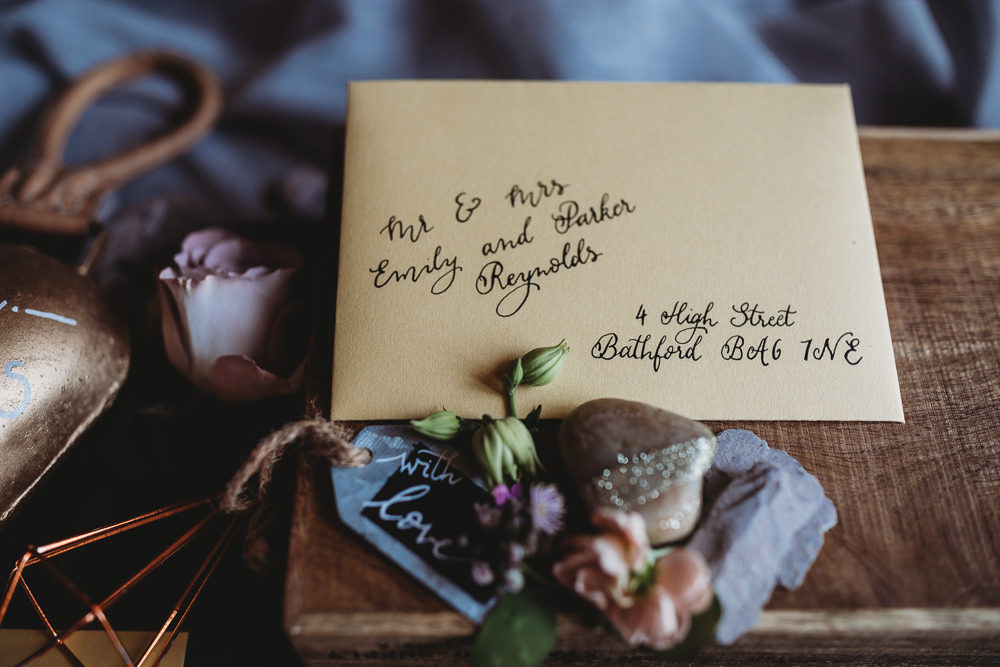 Mr & Mrs
Emily and Parker
Reynolds
4 High Street
Bathford BA6 1NE
with
love